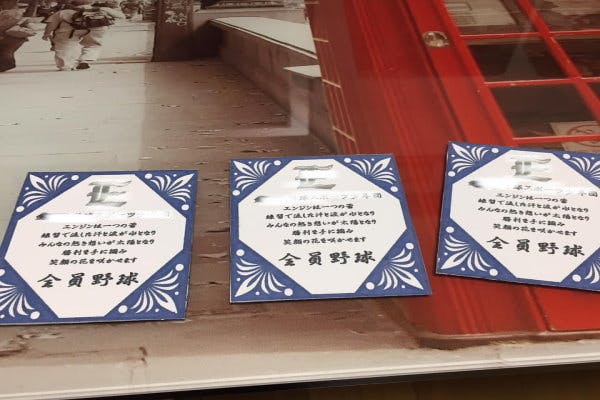 E
エンジンは一つの蕾
練習で流した汗と涙が水となり
みんなの熱き想いが太陽となり
勝利を手に掴み
笑顔の花を咲かせます
全員野球
E
スポーツ少年団
エンジンは一つの蕾
練習で流した汗と涙が水となり
みんなの熱き想いが太陽となり
勝利を手に掴み
笑顔の花を咲かせます
全員野球
E
スポーツ少年団
エンジンは一つの蕾
練習で流した汗と涙が水となり
みんなの熱き想いが太陽となり
勝利を手に掴み
笑顔の花を咲かせます
全員野球